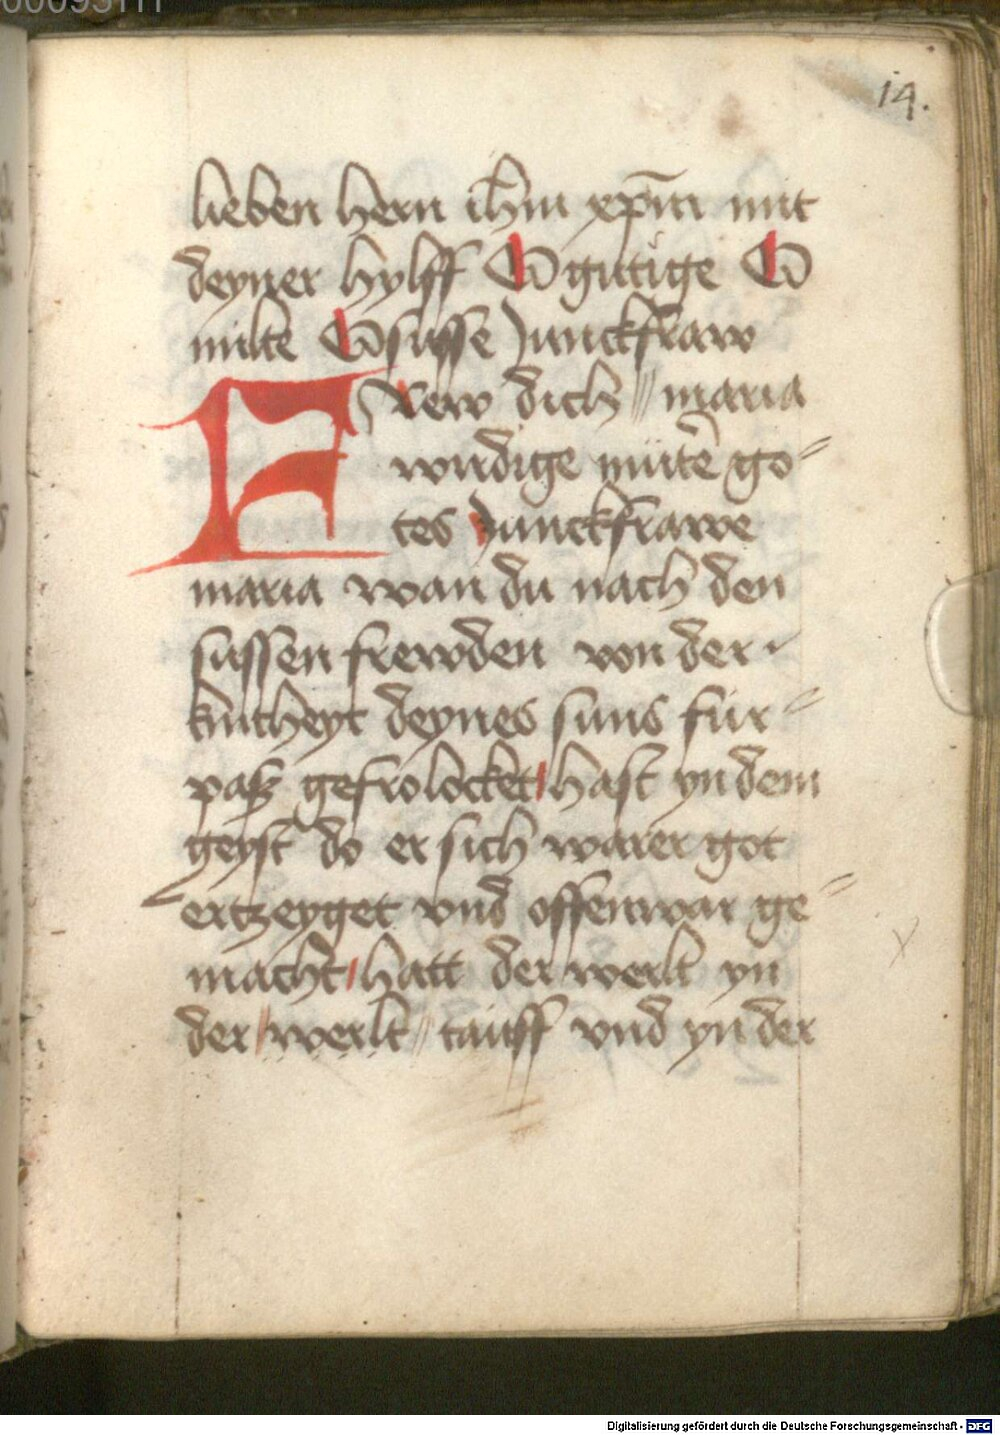 14.
lieben hern ih̄m xp̄m mit
deyner hylff O gutige O
milte O susse Junckfraw
FRew dich maria
wirdige muter go-
tes Junckfrawe
maria wan du nach den
sussen frewden von der
kintheyt deynes suns fur-
pas gefrolocket hast yn dem
geyst do er sich warer got
ertzeyget vnd offenwar ge-
macht hatt der werlt yn
der werlt tauff vnd yn der
Digitalisierung gefördert durch die Deutsche Forschungsgemeinschaft - DFG